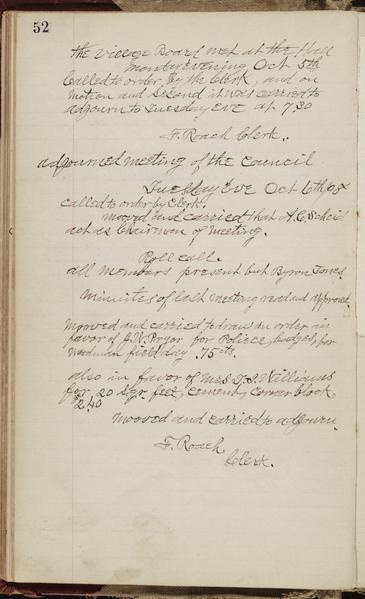 52
the Village Board met at the Hall
monday evening Oct 5th
Called to order by the Clerk, and on
motion and second it was carried to
adjourn to Tuesday eve at 7.30
F. Roach Clerk.
adjourned meeting of the Council
Tuesday Eve Oct 6th 08
called to order by Clerk.
mooved and carried that A. C.
act as Chairman of meeting.
Roll call.
all members present but Byron Jones.
minutes of last meeting read and approved.
mooved and carried to draw an order in
favor of J. W. Pryor for Police, badges, for
Woodman field day .75 cts.
also in favor of Mrs T. P. Williams
for 20 sqr feet, cement, Corner block
2.40
mooved and carried to adjourn.
F. Roach
Clerk.